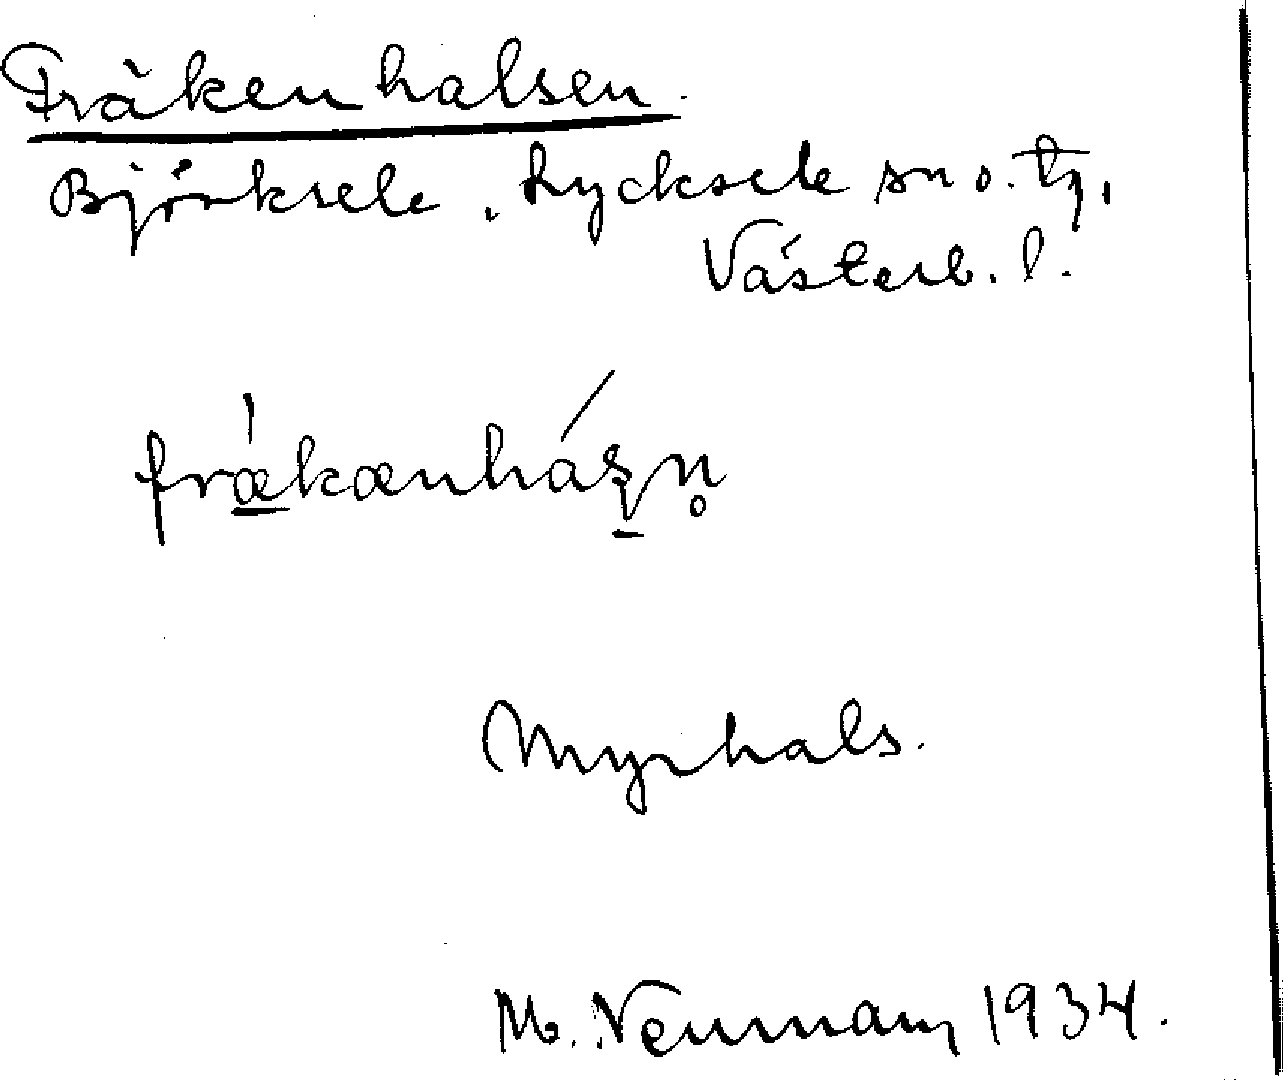 Fräkenhalsen.
Björksele, Lycksele sn o. tg,
Västerb. l.
Myrhals.
M. Neumann 1934.